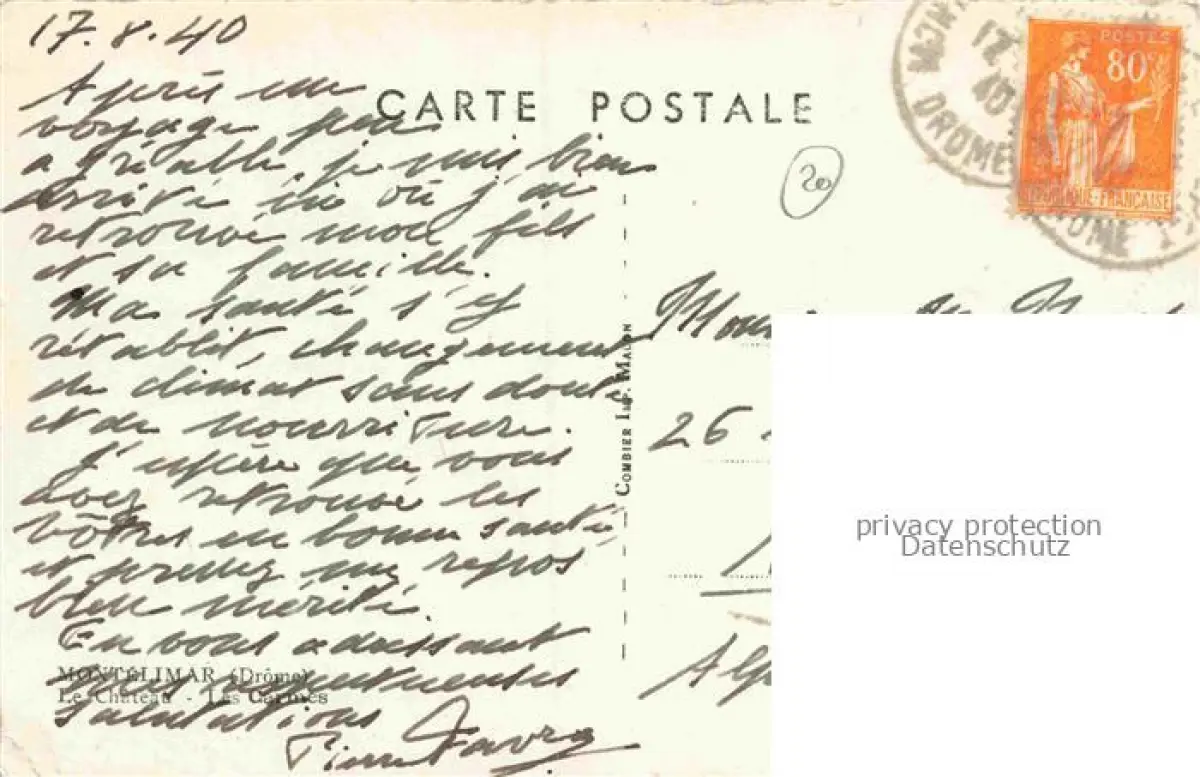 17.8.40
Après un
voyage peu
agréable, je suis bien
arrivé ici où j'ai
retrouvé mon fils
et sa famille.
Ma santé s'y
rétablit, changement
de climat sans doute
et de nourriture.
J'espère que vous
avez retrouvé les
vôtres en bonne santé,
et prenez un repos
bien mérité.
En vous adressant
mes respectueuses
salutations
Pierre Favre
MONTÉLIMAR (Drôme)
Le Château - Les Carmes
CARTE POSTALE
20
COMBIER IMP. MACON
POSTES
80c
RÉPUBLIQUE-FRANÇAISE
17
40
DROME
26
privacy protection
Datenschutz